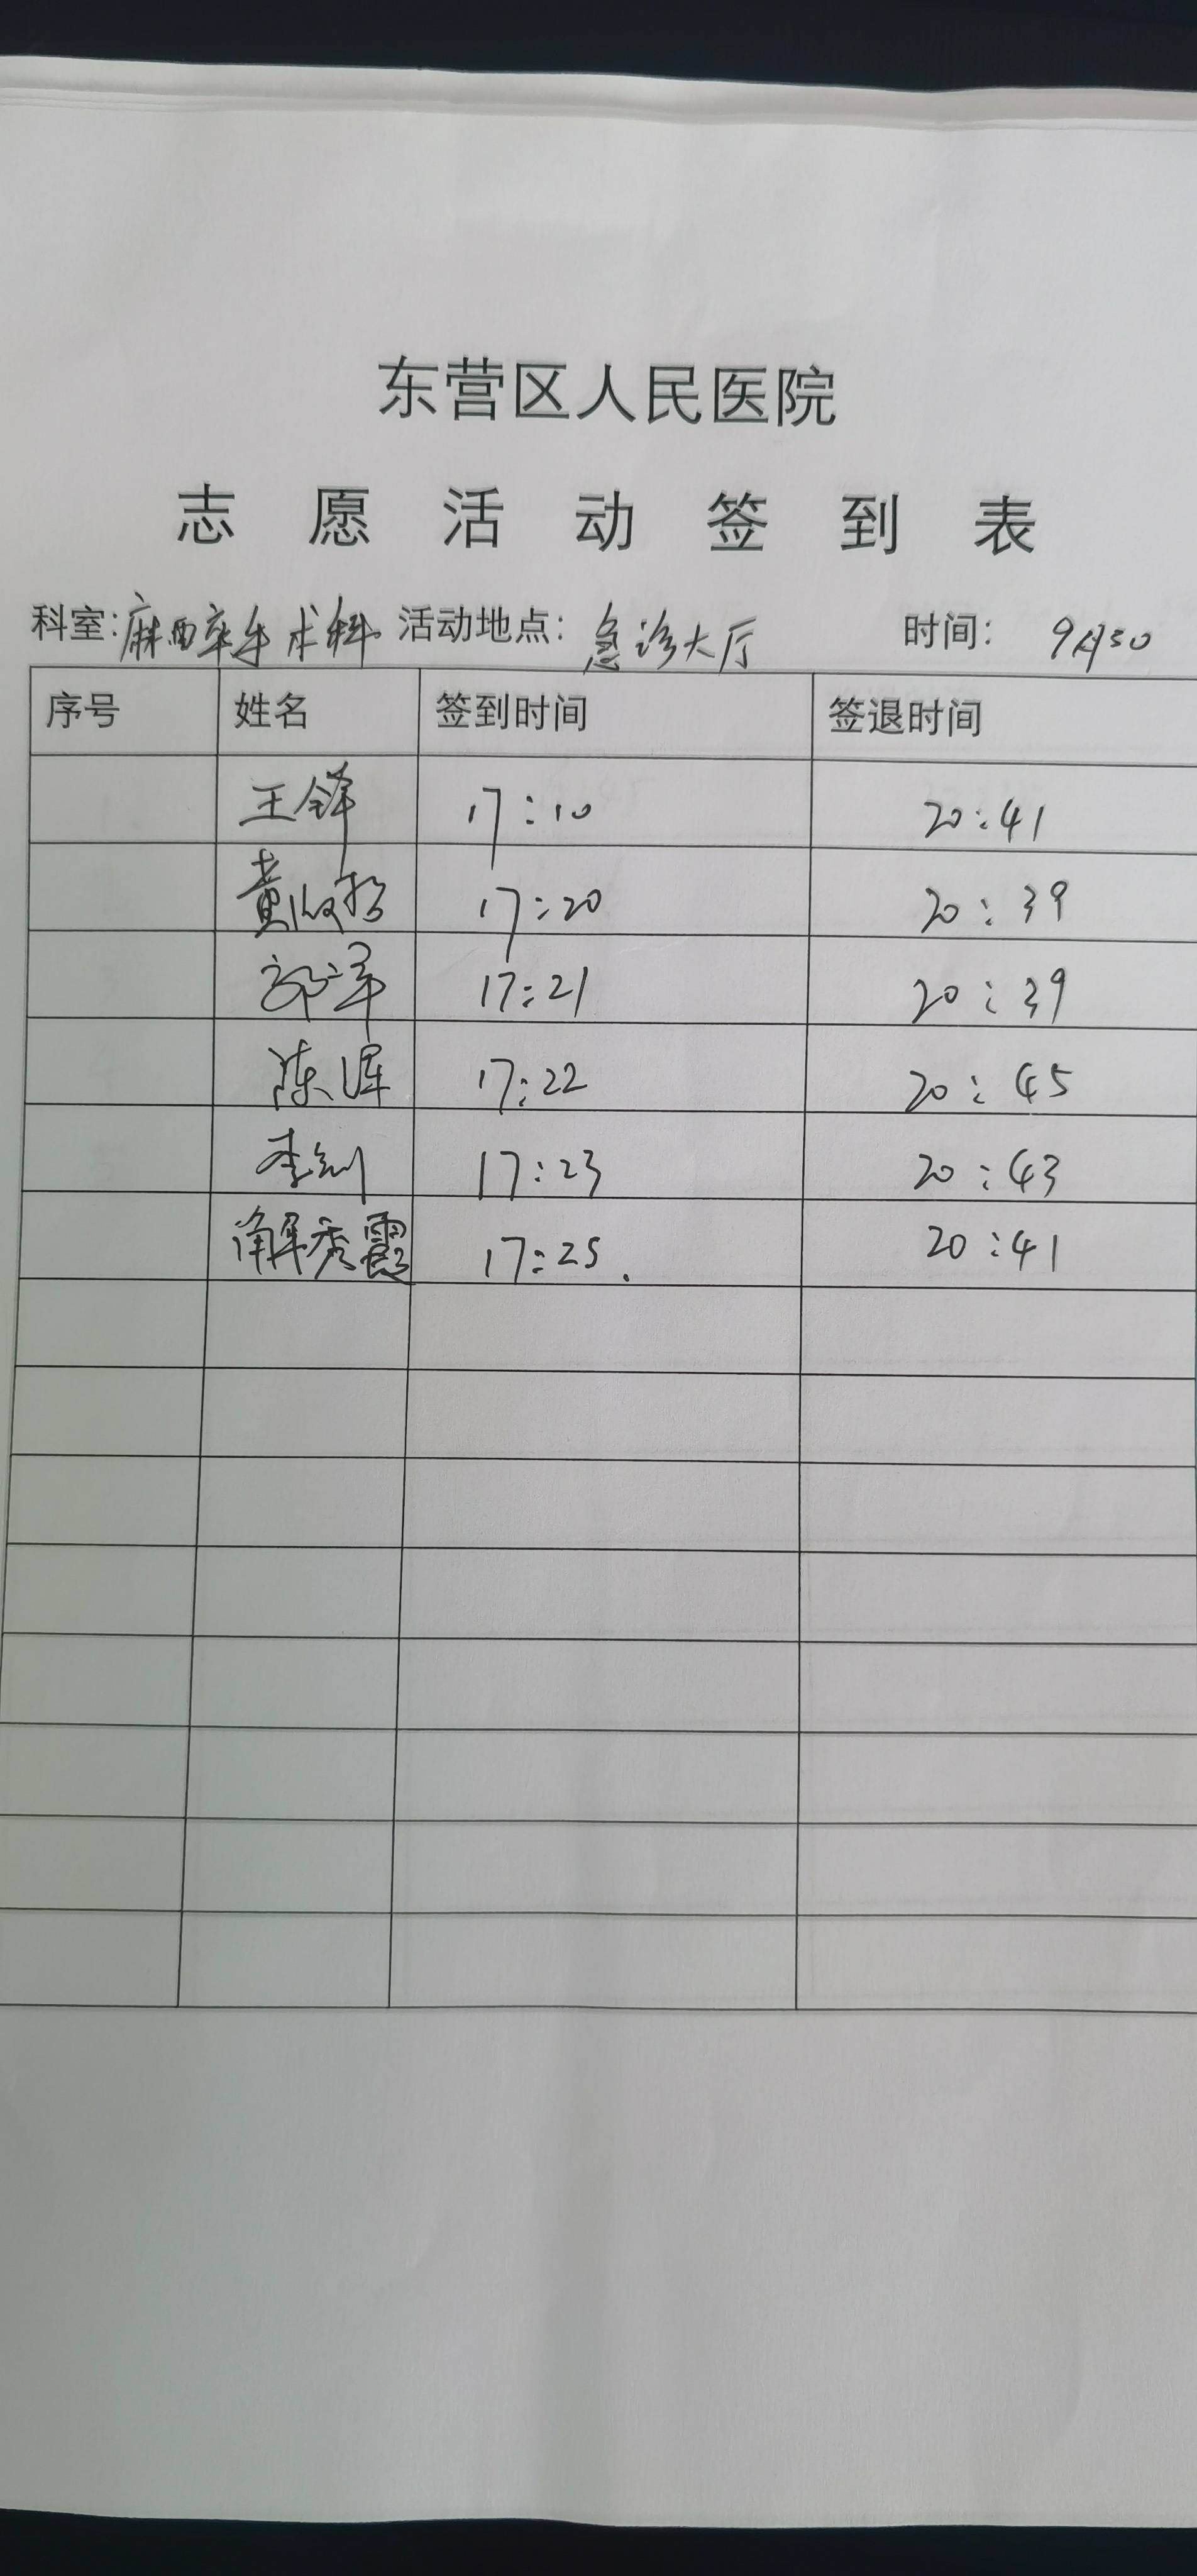 东营区人民医院
志愿活动签到表
科室：麻醉手术科 活动地点：急诊大厅 时间：9月30
序号 姓名 签到时间 签退时间
王锋 17:10 20:41
黄 17:20 20:39
17:21 20:39
陈 17:22 20:45
李 17:23 20:43
解秀霞 17:25. 20:41